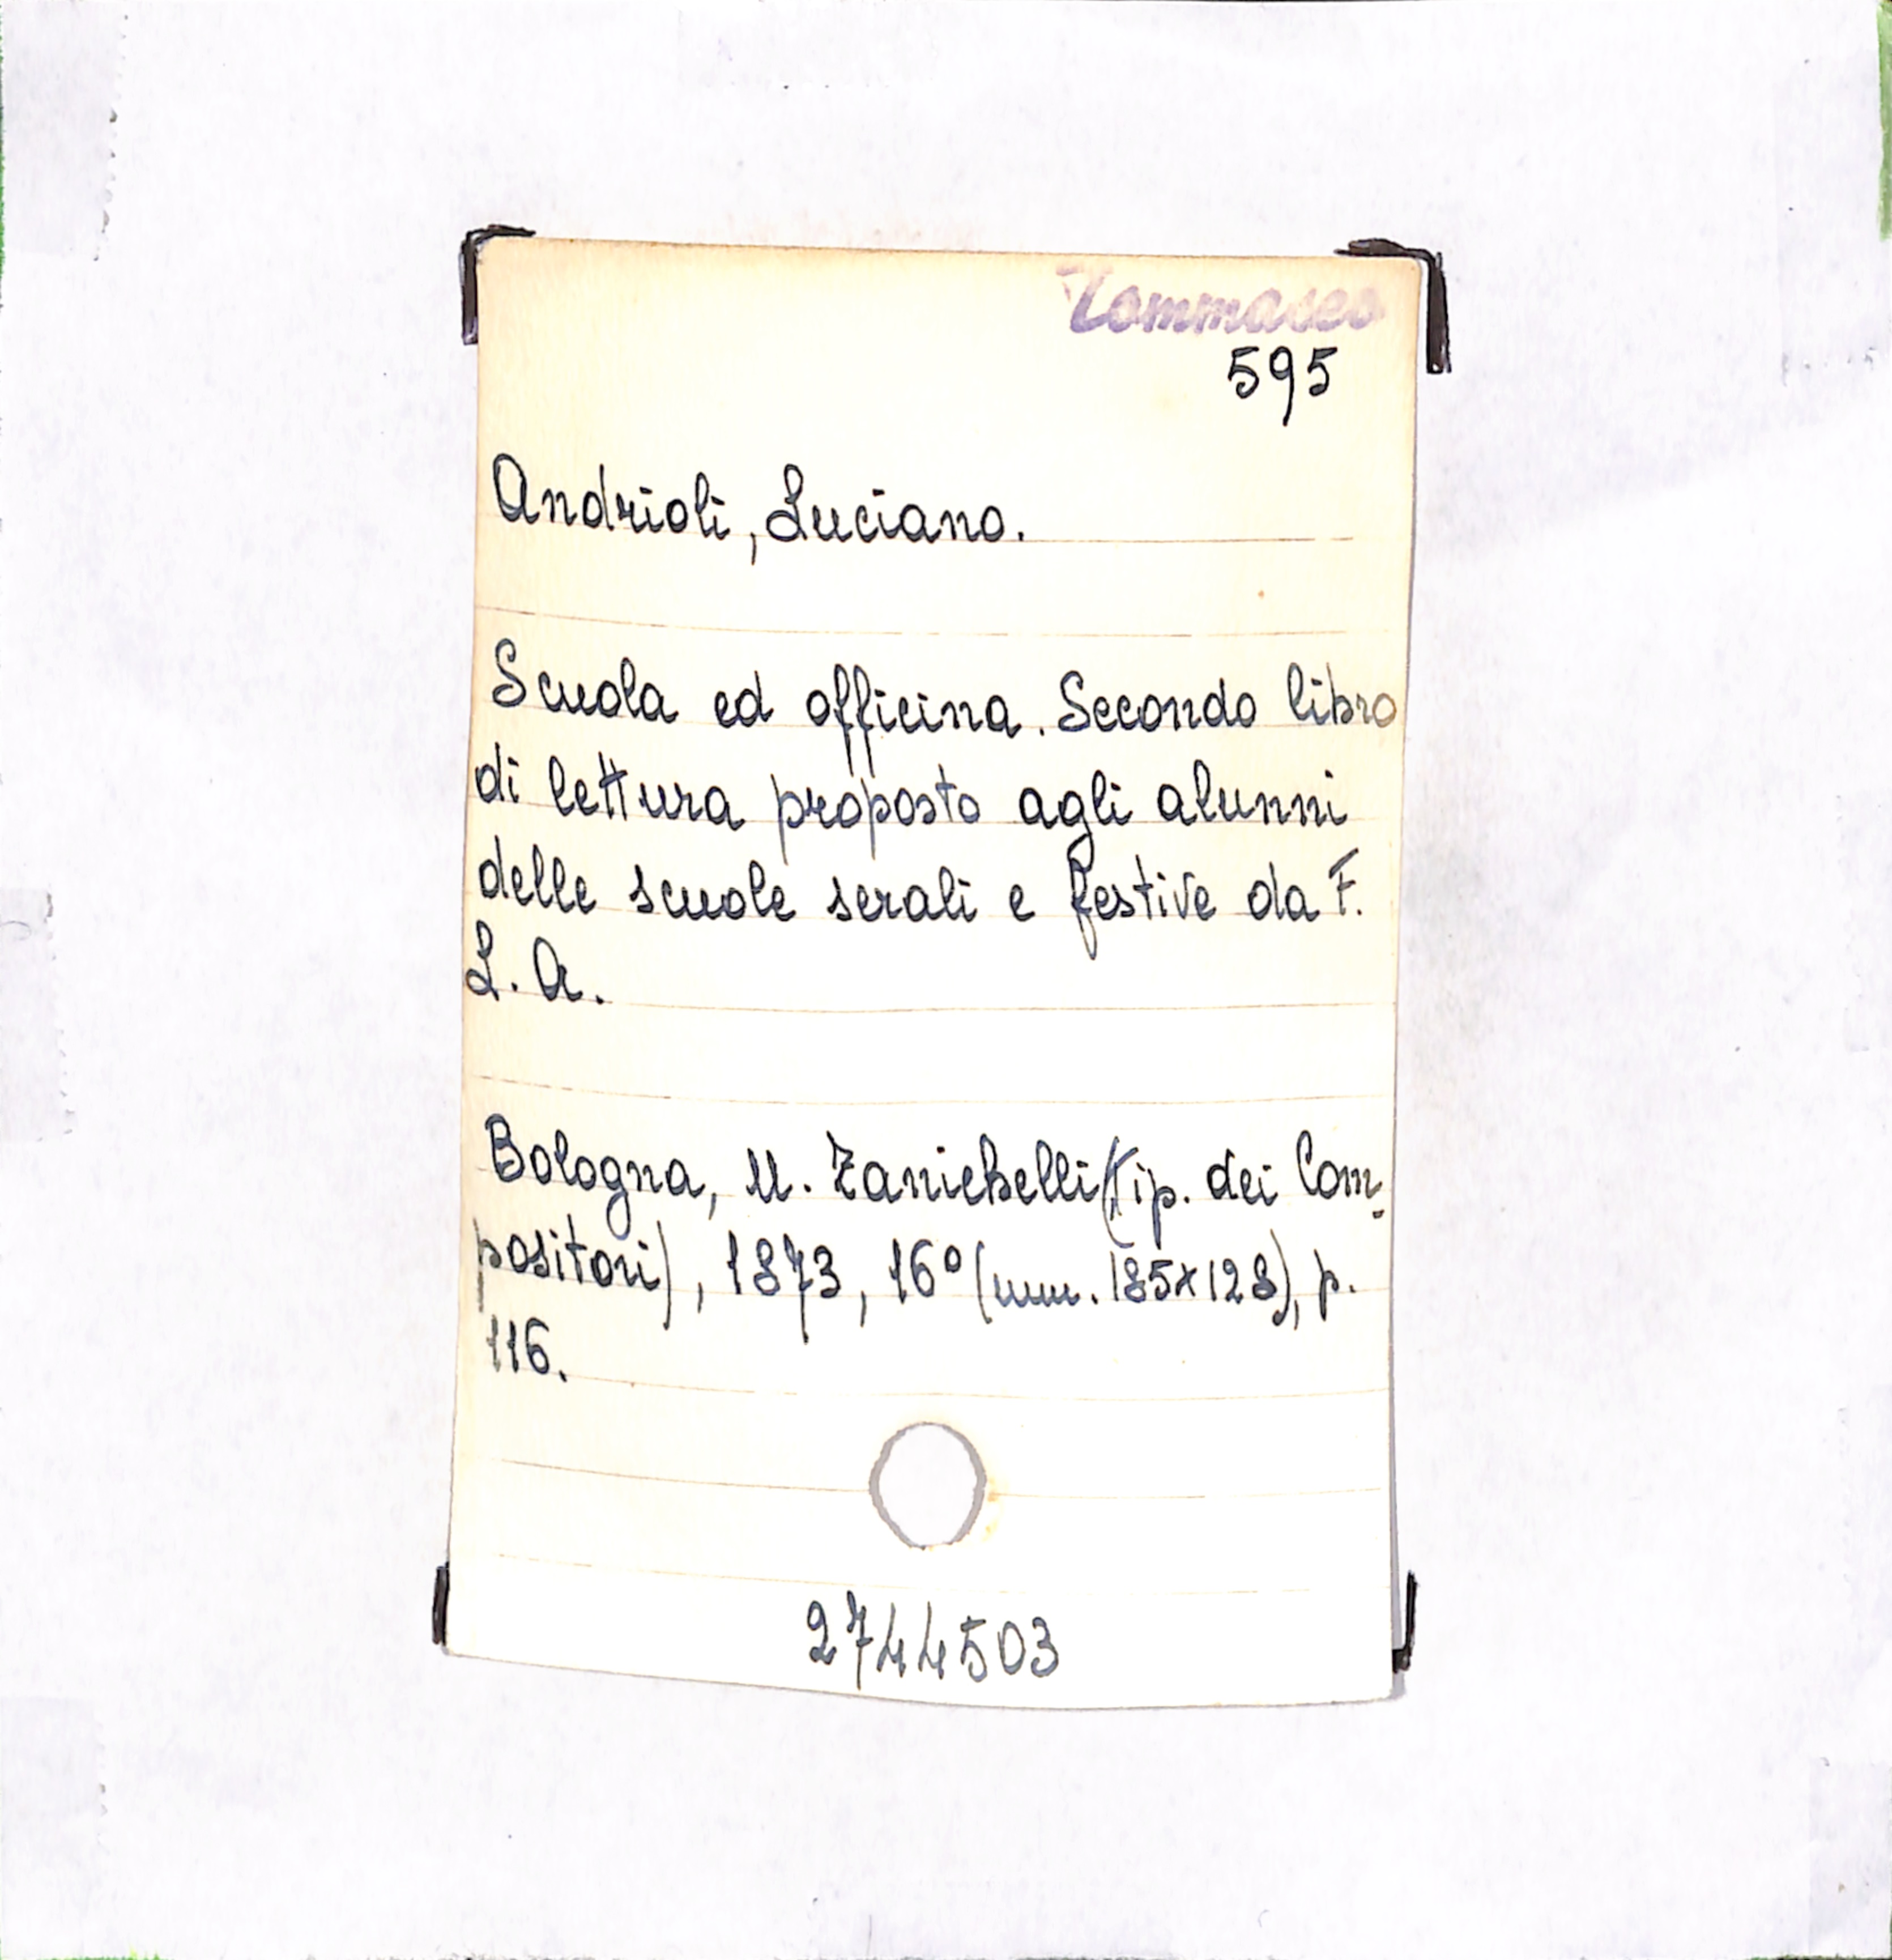 Tommaseo
595
Andrioli, Luciano.
Scuola ed officina. Secondo libro
di lettura proposto agli alunni
delle scuole serali e festive da F.
L. A.
Bologna, N. Zanichelli (tip. dei Com-
positori), 1873, 16° (mm. 185x128), p.
116.
2744503